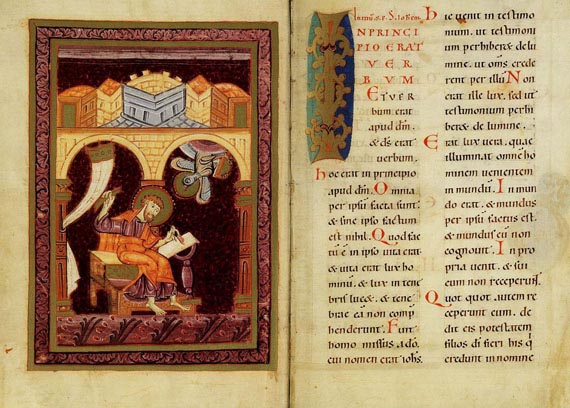 IN PRINCI
PIO ERAT
VER
BVM
Et ver
bum erat
apud dm̄.
& dς erat
verbum.
hoc erat in principio
apud dm̄. Omnia
per ipsū facta sunt.
& sine ipso factum
est nihil. Quod fac
tū ē in ipso uita erat
& uita erat lux ho
minū. & lux in tene
bris lucet. & tene
brae eā non compͣ
henderunt. Fuit
homo missus a dō.
cui nomen erat iohs̄.
hic venit in testimo
nium. ut testimoni
um perhiberet de lu
mine. ut om̄s crede
rent per illū. Non
erat ille lux. sed ut
testimonium perhi
beret de lumine.
Erat lux vera. quae
illuminat omnē ho
minem venientem
in mundū. In mun
do erat. & mundus
per ipsū factus est.
& mundus eū non
cognouit. In pro
pria venit. & sui
eum non receperunt.
Quot quot autem re
ceperunt eum. de
dit eis potestatem
filios dī fieri his q
credunt in nomine